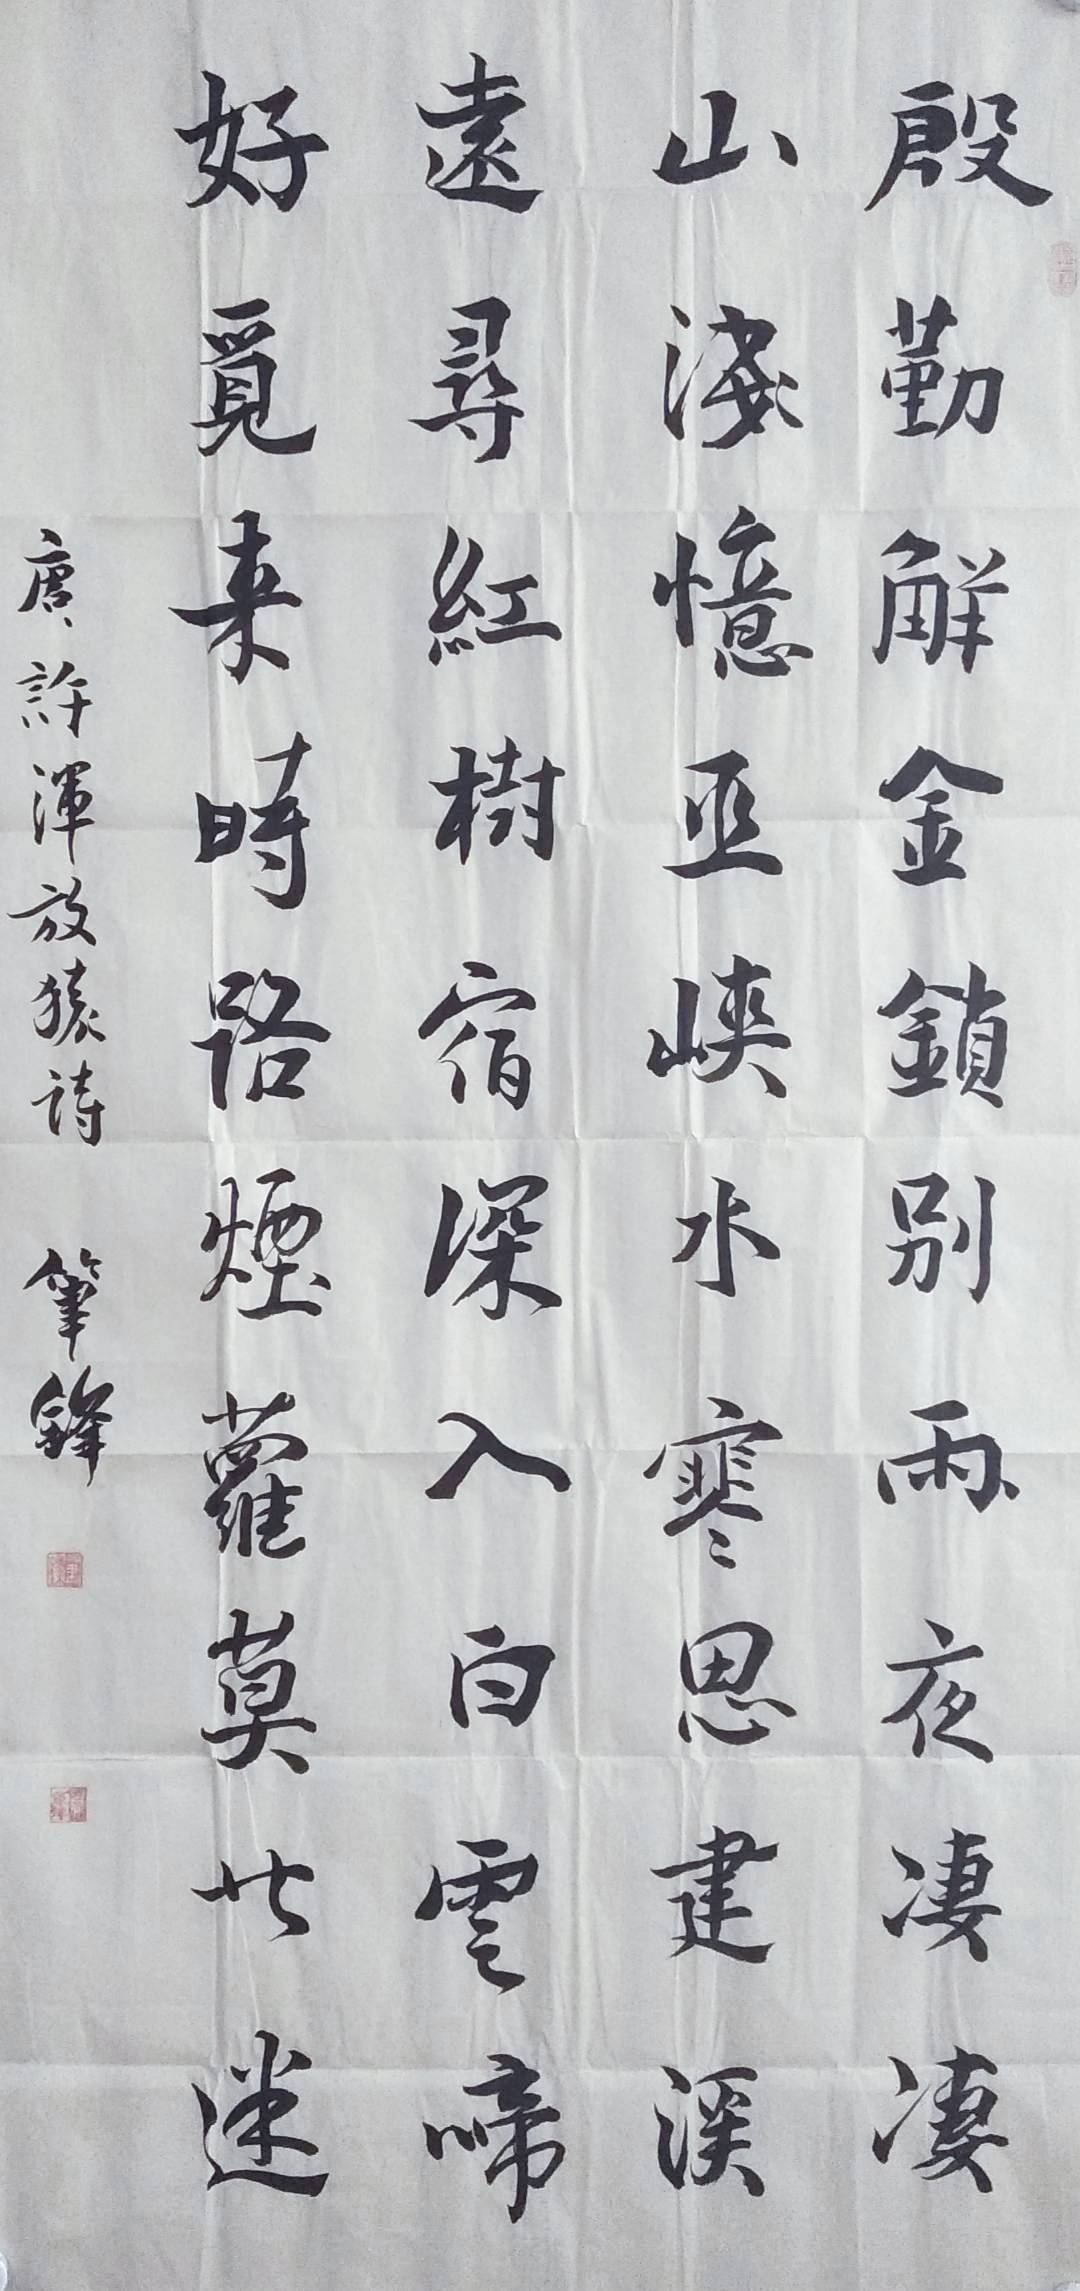 殷勤解金鎖別雨夜凄凄
山淺憶巫峽水寒思建溪
遠尋紅樹宿深入白雲啼
好覓来時路煙蘿莫此迷
唐、許渾放猿詩 筆鋒